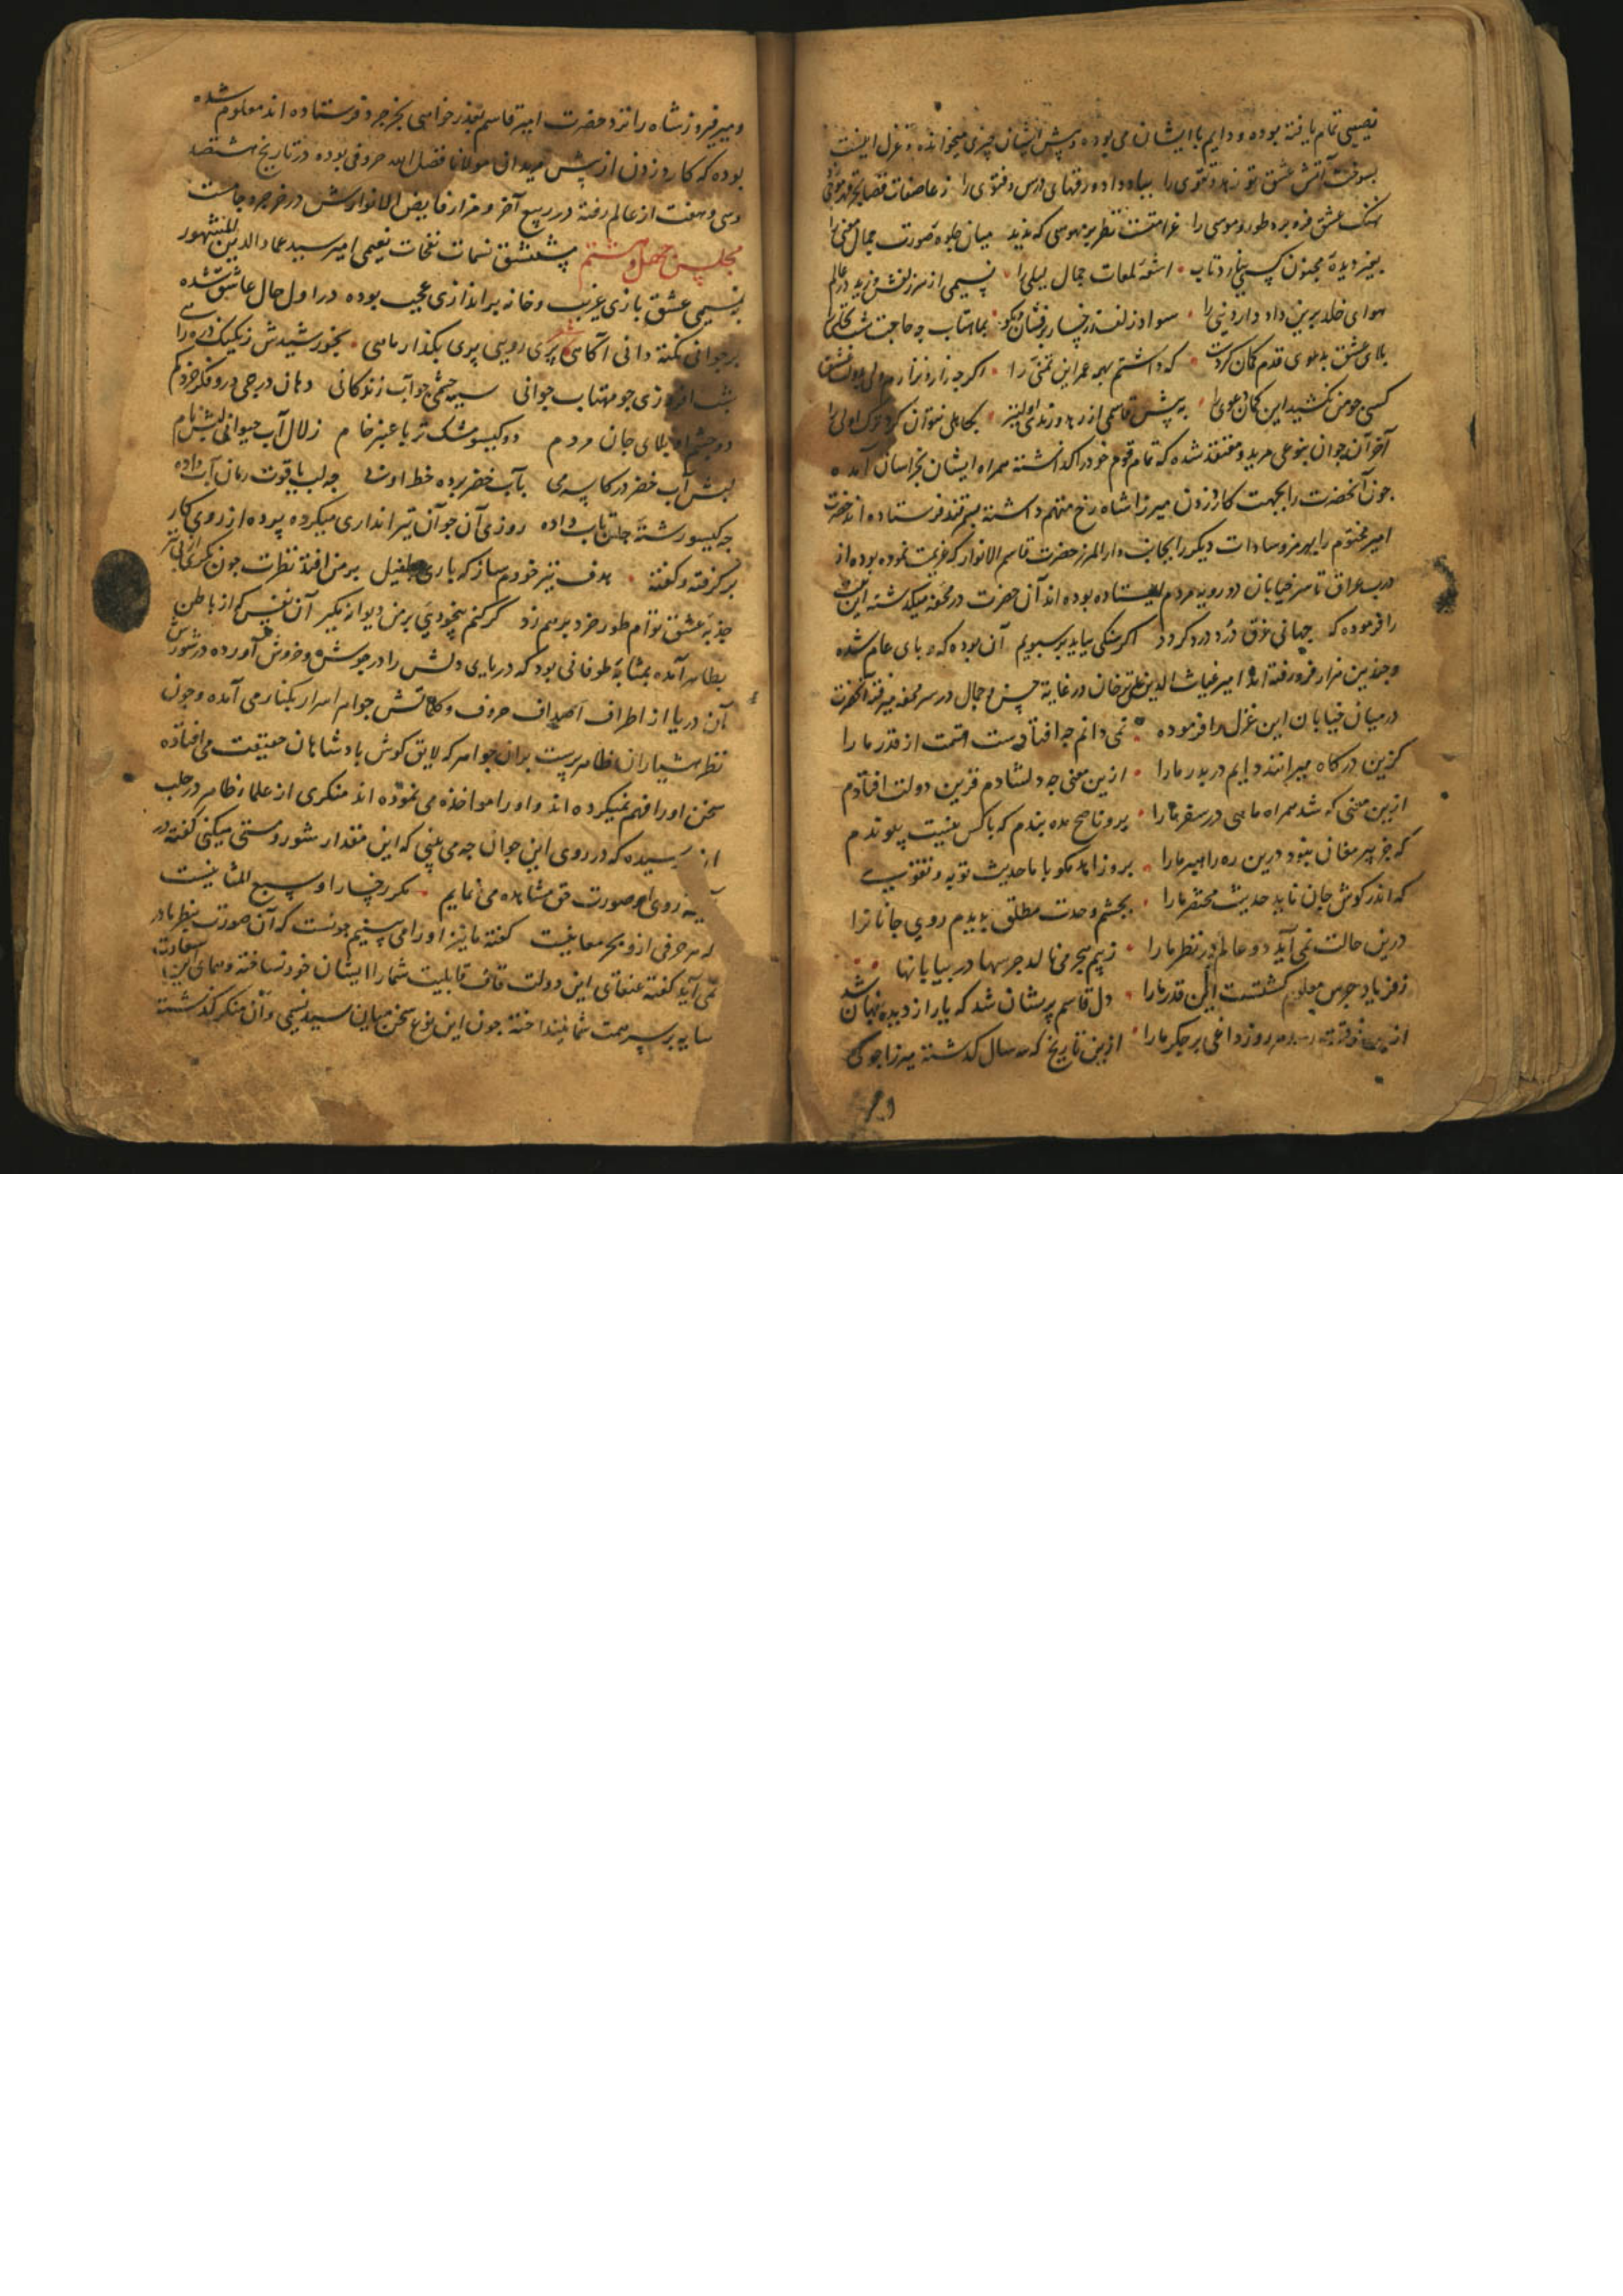 نصیبی تمام یافته بوده و دایم با ایشان می بوده و پیش ایشان چیزی میخوانده و غزل اینست
بسوخت آتش عشق تو زهد و تقوی را بباد داد ورقهای درس و فتوی را ز عاصفات قضا
نهنک عشق فرو برد طور و موسی را غرامتست نظر بر مهوسی که ندید میان جلوه صورت جمال معنی را
بغیر دیده مجنون کسی نیارد تاب اشعه لمعات جمال لیلی را نسیمی از سر زلفش وزید در عالم
هوای خلد برین داد دار دنیی را سواد زلف ز رخسار بماهتاب چه حاجت شب تجلی را
بلای عشق تو قدم کمان کردست که داشتم همه عمر این تمنی را اکرچه زار و نزارم ولی
کسی چو من نکشید این کمان دعوی را به پیش قاسمی از زهد و زندی اولیتر بکاهلی نتوان کرد ترک اولی را
آخر آن جوان بنوعی مرید و معتقد شده که تمام قوم خود را کذاشته همراه ایشان بخراسان آمده
چون آنحضرت را بجهت کارد زدن میرزا شاه رخ متهم داشته بسمرقند فرستاده اند حضرت
امیر مختوم را بهرمز و سادات دیکر را بجانب دار المرز حضرت قاسم الانوار که عزیمت نموده بوده از
درب عراق تا سر خیابان دو رویه مردم ایستاده بوده اند آن حضرت در محفه میکذشته این بیت
را فرموده که جهانی غرق درد و درد کردد اکر مشکی بیاید بر سبویم آن بوده که وبای عام شده
و چندین هزار فرو رفته اند امیر غیاث الدین علی ترخان در غایة حسن و جمال در سر محفه میرفته آنحضرت
در میان خیابان این غزل را فرموده نمی دانم چه افتادست قسمت از قدر ما را
کزین درکاه میرانند دایم در بدر ما را ازین معنی چه دلشادم قرین دولت افتادم
ازین معنی که شد همراه ماهی در سفر ما را برو ناصح مده پندم که با کس نیست پیوندم
که جز پیر مغان نبود درین ره راهبر ما را برو زاهد مکو با ما حدیث توبه و تقوی
که اندر کوش جان ناید حدیث مختصر ما را بچشم وحدت مطلق بدیدم روی جانانرا
درین حالت نمی آید دو عالم در نظر ما را ز بیم هجر می نالد جرسها در بیابانها
ز فریاد جرس معلوم کشتست این قدر ما را دل قاسم پریشان شد که یار از دیده پنهان شد
روز داغی بر جکر ما را ازین تاریخ که سال کذشته میرزا جوکی
و میر فیروز شاه را نزد حضرت امیر قاسم بعذر خواهی بخرجرد فرستاده اند معلوم شده
بوده که کارد زدن از پیش میدانی مولانا فضل الله حروفی بوده در تاریخ هشتصد
و سی و هفت از عالم رفته در ربیع آخر و مزار فایض الانوارش در خرجرد جامست
مجلس چهل و هشتم مستنشق نسمات نفحات نعیمی امیر سید عماد الدین المشهور
بنسیمی عشق بازی غریب و خانه براندازی عجیب بوده در اول حال عاشق شده
بر جوانی نکته دانی آکاهی پری رویی پری بکذار ماهی بخورشیدش نزدیک ذره را
شب افروزی چو مهتاب جوانی سیه چشمی چو آب زندکانی دهان درجی درو
دو چشم او بلای جان مردم دو کیسو مشک تر با عنبر خام زلال آب حیوانی لبش نام
لبش آب خضر در کاسه می بآب خضر برده خط او پی چه لب یاقوت رمان آب داده
چه کیسو رشته جان تاب داده روزی آن جوان تیراندازی میکرده پرده از روی کار
بر کرفته و کفته هدف تیر خودم ساز که باری بطفیل بر من افتد نظرت چون نکری از پی تیر
جذبه عشق توام طور خرد بر هم زد کر کنم بیخودیی بر من دیوانه مکیر آن نفس که از باطن
بظاهر آمده بمثابه طوفانی بود که دریای دلش را در جوش و خروش آورده در شورش
آن دریا از اطراف اصداف حروف و کلماتش جواهر اسرار بکنار می آمده و چون
نظر هشیاران ظاهر پرست بدان جواهر که لایق کوش پادشاهان حقیقت می افتاده
سخن او را فهم نمیکرده اند و او را مواخذه می نموده اند منکری از علماء ظاهر در حلب
از پرسیده که در روی این جوان چه می بینی که این مقدار شور و مستی میکنی کفته در
آینه روی او صورت حق مشاهده می نمایم مکر رخسار او سبع المثانیست
که هر حرفی ازو بحر معانیست کفته ما نیز او را می بینیم چونست که آن صورت بنظر ما در
نمی آید کفته عنقای این دولت قاف قابلیت شما را آشیان خود نساخته و همای این سعادت
سایه بر سر همت شما نینداخته چون این نوع سخن میان سید نسیمی و آن منکر کذشته